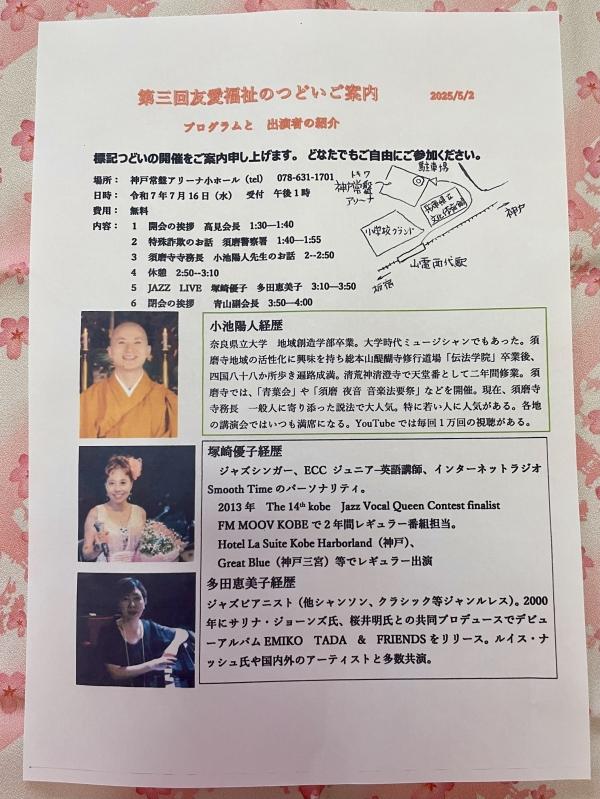 第三回友愛福祉のつどいご案内 2025/5/2
プログラムと 出演者の紹介
標記つどいの開催をご案内申し上げます。 どなたでもご自由にご参加ください。
場所： 神戸常盤アリーナ小ホール（tel） 078-631-1701
日時： 令和７年７月16日（水） 受付 午後１時
費用： 無料
内容： 1 開会の挨拶 高見会長 1:30―1:40
2 特殊詐欺のお話 須磨警察署 1:40―1:55
3 須磨寺寺務長 小池陽人先生のお話 2--2:50
4 休憩 2:50--3:10
5 JAZZ LIVE 塚崎優子 多田恵美子 3:10―3:50
6 閉会の挨拶 青山副会長 3:50―4:00
駐車場
トキワ
神戸常盤
アリーナ
兵庫県立
文化体育館
小学校グランド
神戸
山電西代駅
板宿
小池陽人経歴
奈良県立大学 地域創造学部卒業。大学時代ミュージシャンでもあった。須
磨寺地域の活性化に興味を持ち総本山醍醐寺修行道場「伝法学院」卒業後、
四国八十八か所歩き遍路成満。清荒神清澄寺で天堂番として二年間修業。須
磨寺では、「青葉会」や「須磨 夜音 音楽法要祭」などを開催。現在、須磨寺
寺務長 一般人に寄り添った説法で大人気。特に若い人に人気がある。各地
の講演会ではいつも満席になる。YouTubeでは毎回１万回の視聴がある。
塚崎優子経歴
ジャズシンガー、ECC ジュニア―英語講師、インターネットラジオ
Smooth Time のパーソナリティ。
2013 年 The 14th kobe Jazz Vocal Queen Contest finalist
FM MOOV KOBE で２年間レギュラー番組担当。
Hotel La Suite Kobe Harborland（神戸）、
Great Blue（神戸三宮）等でレギュラー出演
多田恵美子経歴
ジャズピアニスト（他シャンソン、クラシック等ジャンルレス）。2000
年にサリナ・ジョーンズ氏、桜井明氏との共同プロデュースでデビュ
ーアルバム EMIKO TADA & FRIENDS をリリース。ルイス・ナ
ッシュ氏や国内外のアーティストと多数共演。